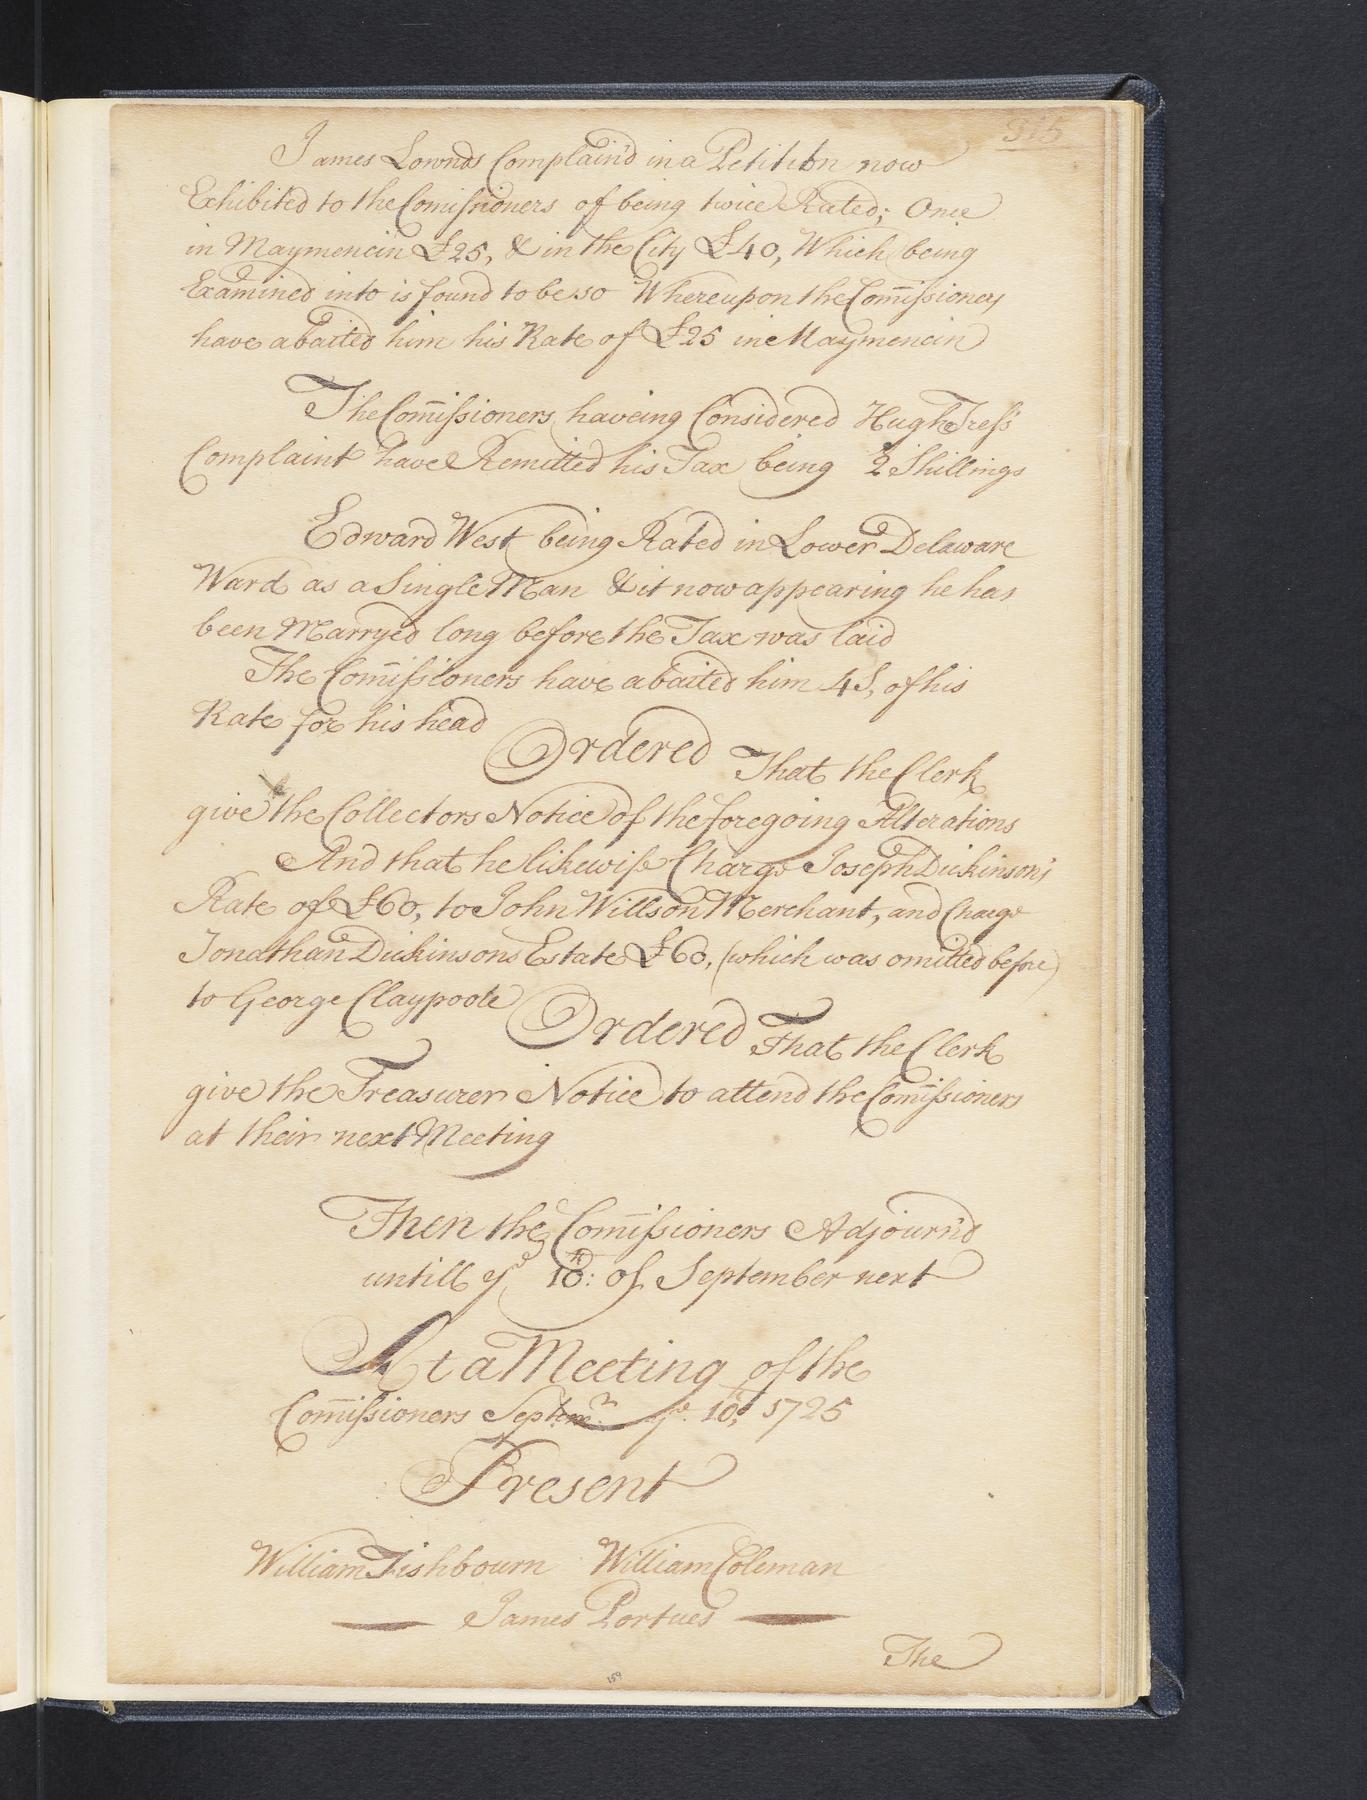 315
James Lownds Complain'd in a Petition now
Exhibited to the Com̄issioners of being twice Rated; Once
in Maymencin £25, & in the City £40, Which being
Examined into is found to be so Whereupon the Com̄issioners
have abaited him his Rate of £25 in Maymencin
The Com̄issioners haveing Considered Hugh Tress's
Complaint have Remitted his Tax being 2 Shillings
Edward West being Rated in Lower Delaware
Ward as a Single Man & it now appearing he has
been Marryed long before the Tax was laid
The Com̄issioners have abaited him 4S, of his
Rate for his head
Ordered That the Clerk
give the Collectors Notice of the foregoing Alterations
And that he likewise Charge Joseph Dickinson's
Rate of £60, to John Willson Merchant, and Charge
Jonathan Dickinsons Estate £60, (which was omitted before)
to George Claypoole
Ordered That the Clerk
give the Treasurer Notice to attend the Com̄issioners
at their next Meeting
Then the Com̄issioners Adjourn'd
untill ye 10th: of September next
At a Meeting of the
Com̄issioners Septemr. ye. 10th, 1725
Present
William Fishbourn William Coleman
James Portues
The
159